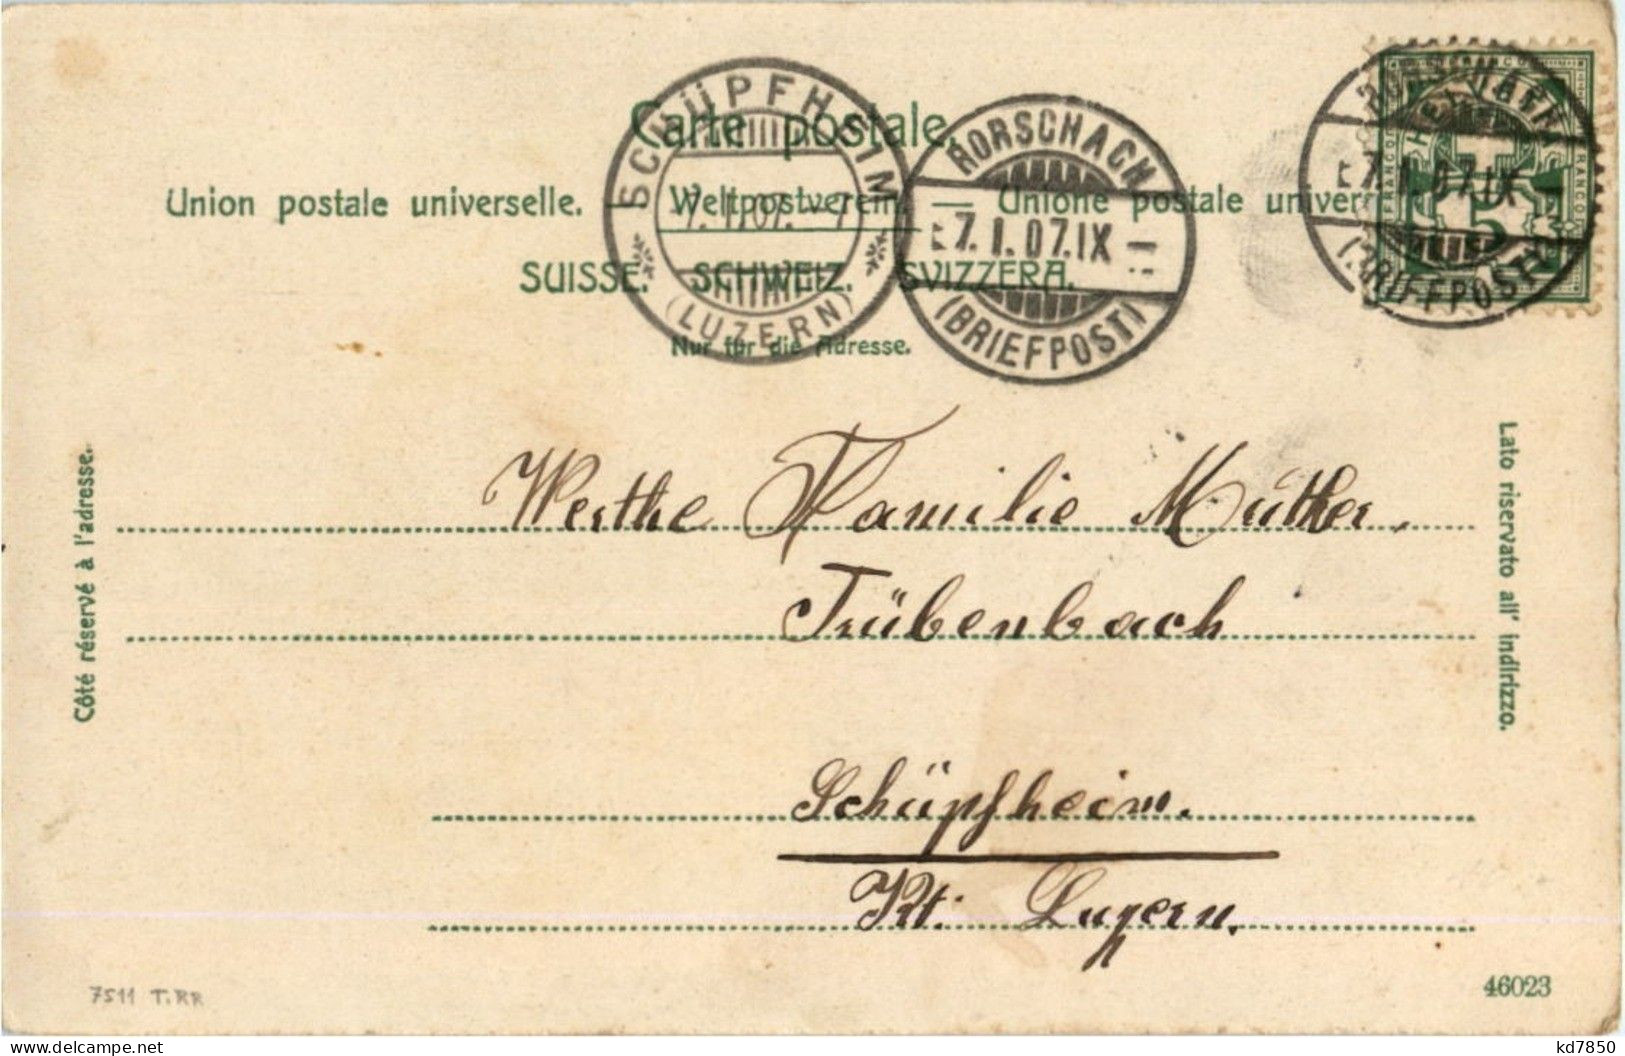 Carte postale.
Union postale universelle. — Weltpostverein. — Unione postale univer
SUISSE. SCHWEIZ. SVIZZERA.
Nur für die Adresse.
SCHÜPFHEIM
7. I. 07. — 7
(LUZERN)
RORSCHACH
7. I. 07. IX
(BRIEFPOST)
RORSCHACH
7. I. 07. IX
(BRIEFPOST)
FRANCO
5
Côté réservé à l'adresse.
Lato riservato all' indirizzo.
Werthe Familie Müther.
Trübenbach
Schüpfheim.
Kt. Luzern.
7511 T.RR
46023
kd7850